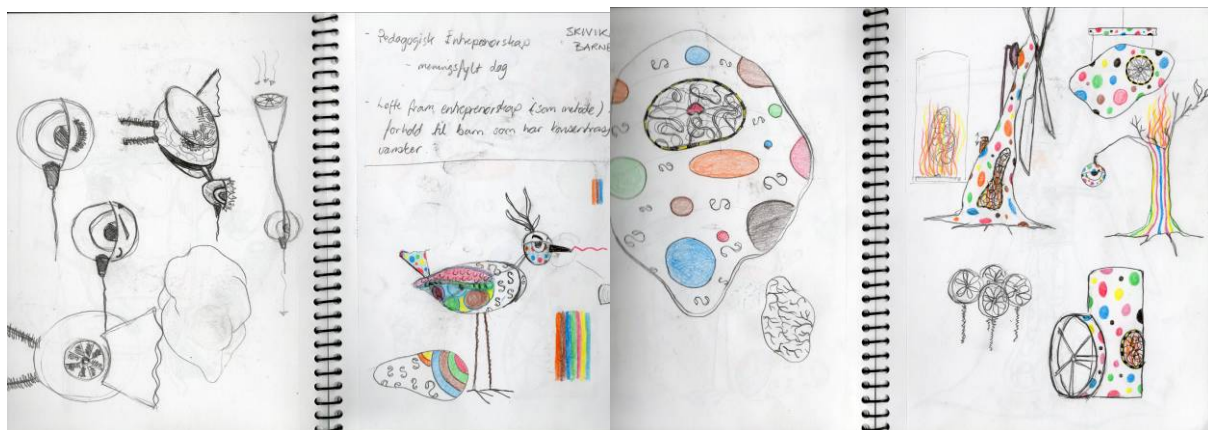 - Pedagogisk Entreprenørskap
- meningsfylt dag
- Løfte fram entreprenørskap (som metode) i
forhold til barn som har konsentrasjons
vansker.
SKIVIK
BARNE